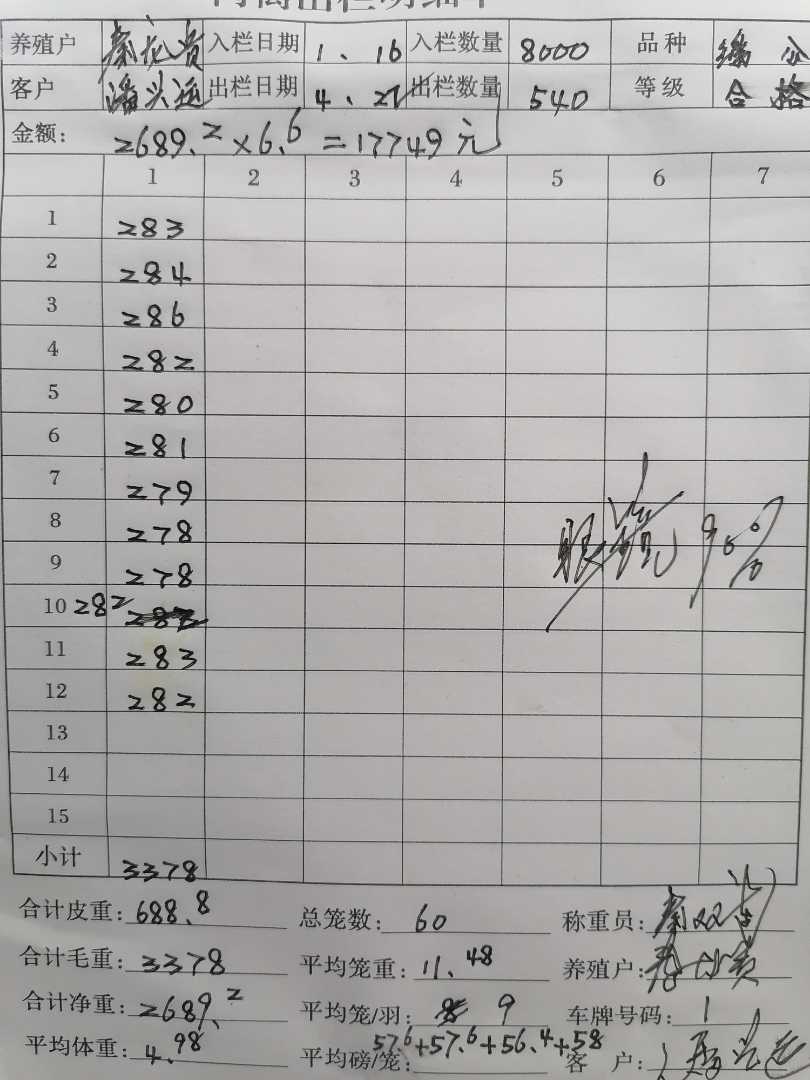 养殖户 入栏日期 1.16 入栏数量 8000 品种
客户 潘兴运 出栏日期 4.27 出栏数量 540 等级 合格
金额: 2689.2×6.6=17749元
1 2 3 4 5 6 7
1 283
2 284
3 286
4 282
5 280
6 281
7 279
8 278
9 278
10 282
11 283
12 282
13
14
15
小计 3378
眼镜 90%
合计皮重: 688.8 总笼数: 60 称重员:
合计毛重: 3378 平均笼重: 11.48 养殖户:
合计净重: 2689.2 平均笼/羽: 9 车牌号码: 1
平均体重: 4.98 平均磅/笼: 57.6+57.6+56.4+58 客户: